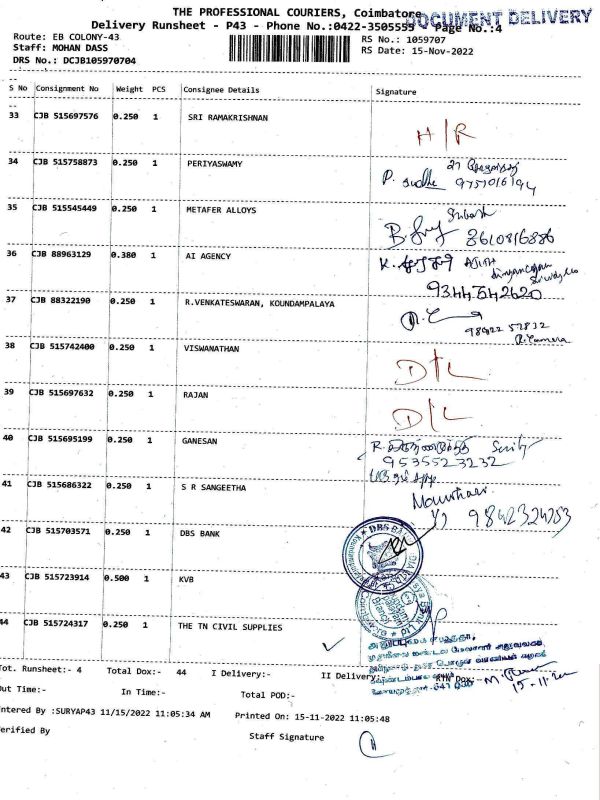 THE PROFESSIONAL COURIERS, Coimbatore
DOCUMENT DELIVERY
Delivery Runsheet - P43 - Phone No.:0422-3505555 Page No.:4
Route: EB COLONY-43 RS No.: 1059707
Staff: MOHAN DASS RS Date: 15-Nov-2022
DRS No.: DCJB105970704
S No Consignment No Weight PCS Consignee Details Signature
33 CJB 515697576 0.250 1 SRI RAMAKRISHNAN H/R
34 CJB 515758873 0.250 1 PERIYASWAMY
P. sudha 9757016194
35 CJB 515545449 0.250 1 METAFER ALLOYS
8610816886
36 CJB 88963129 0.380 1 AI AGENCY
9344542620
37 CJB 88322190 0.250 1 R.VENKATESWARAN, KOUNDAMPALAYA
98422 57832
38 CJB 515742400 0.250 1 VISWANATHAN D/L
39 CJB 515697632 0.250 1 RAJAN D/L
40 CJB 515695199 0.250 1 GANESAN
9535523232
41 CJB 515686322 0.250 1 S R SANGEETHA
9842324753
42 CJB 515703571 0.250 1 DBS BANK
43 CJB 515723914 0.500 1 KVB
44 CJB 515724317 0.250 1 THE TN CIVIL SUPPLIES
Tot. Runsheet:- 4 Total Dox:- 44 I Delivery:- II Delivery:- RTN Dox:-
Out Time:- In Time:- Total POD:-
15.11.22
Entered By :SURYAP43 11/15/2022 11:05:34 AM Printed On: 15-11-2022 11:05:48
Verified By Staff Signature